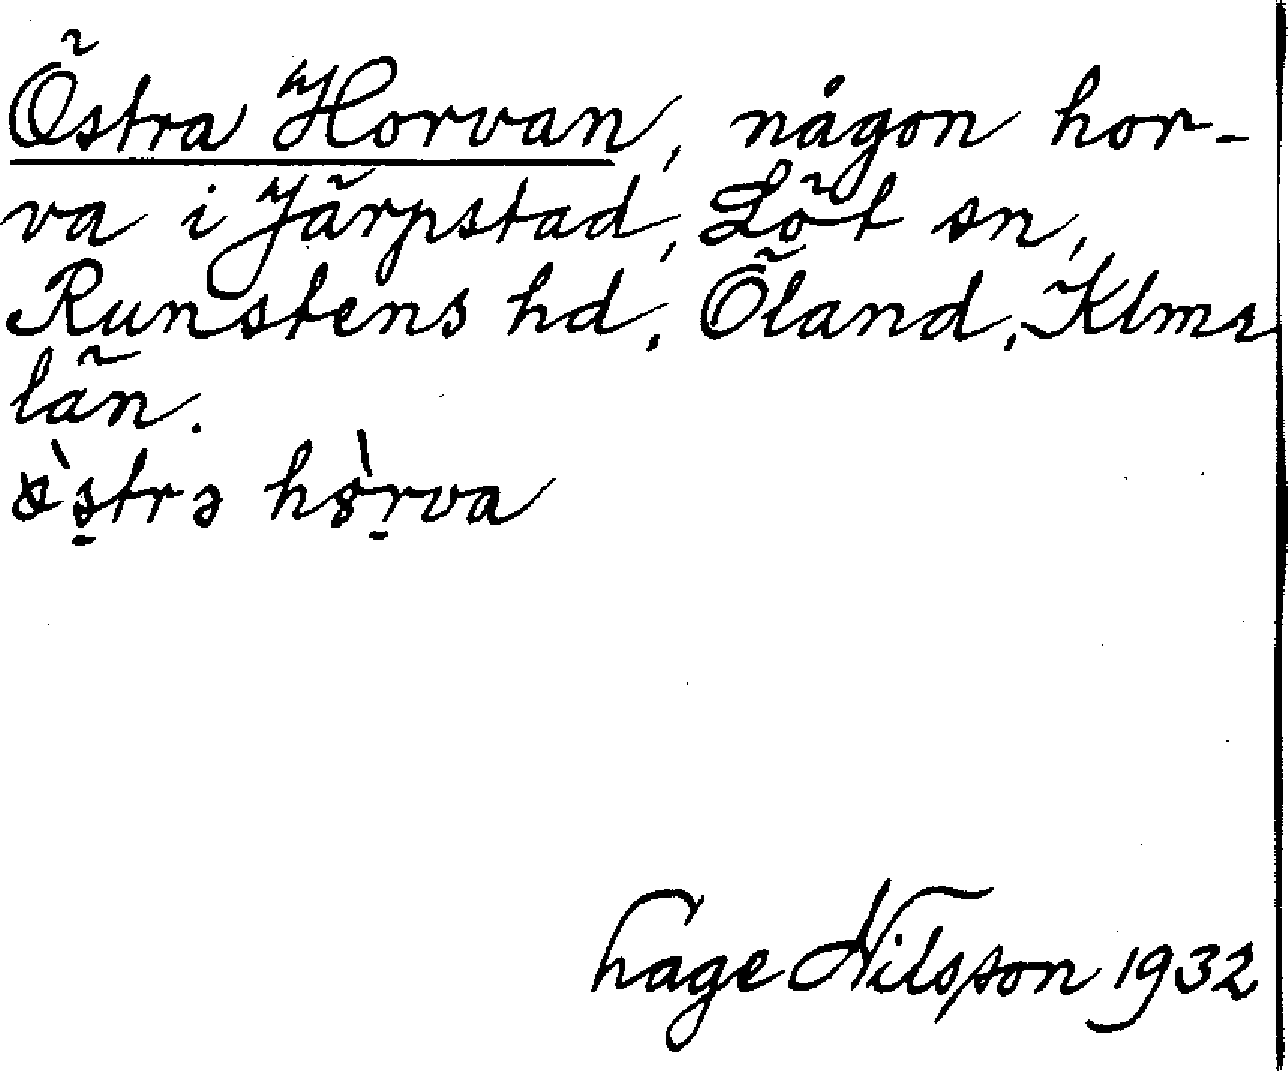 Östra Horvan, någon hor-
va i Järpstad, Löt sn,
Runstens hd, Öland, Klmr
län.
östrə hòrva
Hage Nilsson 1932